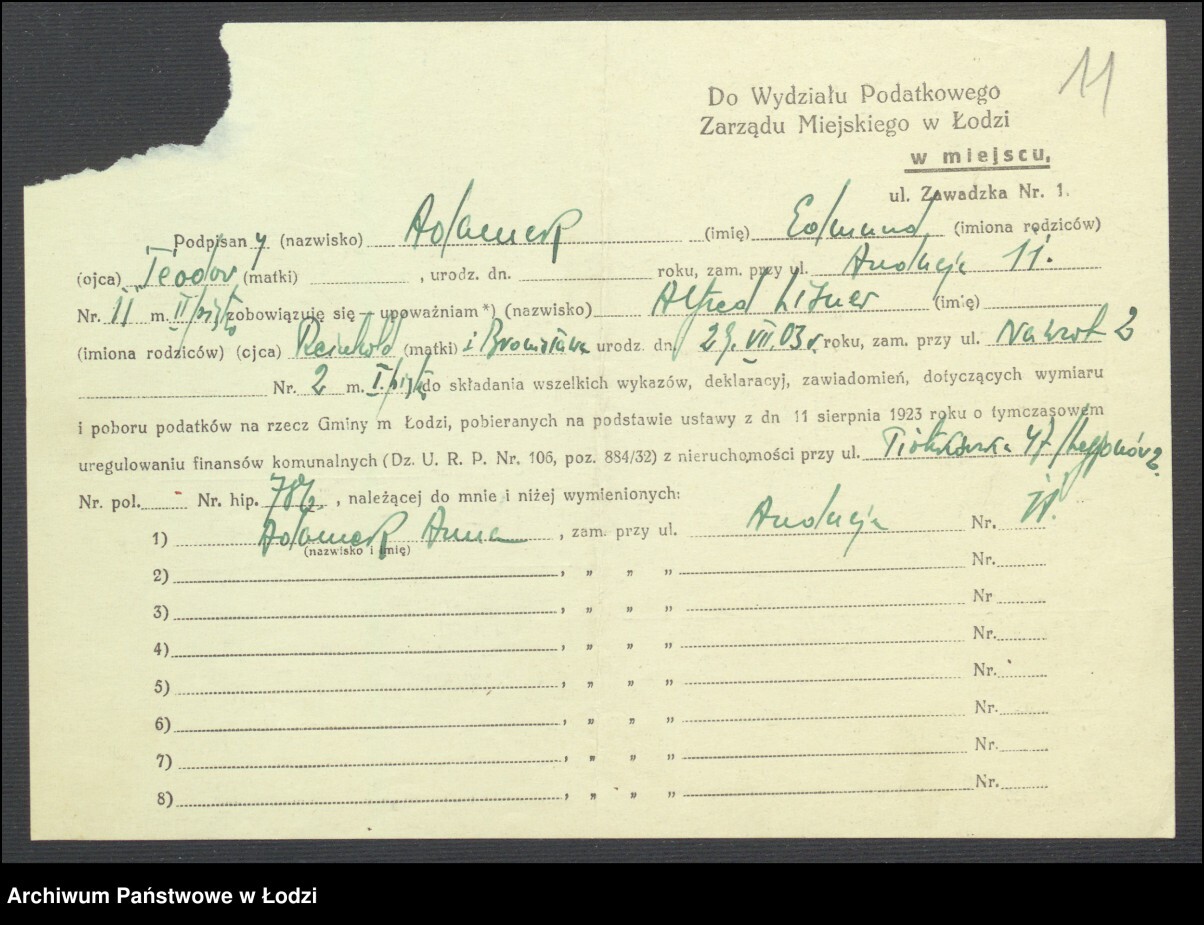 11
Do Wydziału Podatkowego
Zarządu Miejskiego w Łodzi
w miejscu,
ul. Zawadzka Nr. 1.
Podpisany (nazwisko) Adamek (imię) Edmund (imiona rodziców)
(ojca) Teodor (matki) , urodz. dn. roku, zam. przy ul. Andrzeja 11.
Nr. 11 m. II/piętr zobowiązuję się — upoważniam *) (nazwisko) Alfred (imię)
(imiona rodziców) (ojca) Reinhold (matki) i Bronisława urodz. dn. 29. VII. 03 r. roku, zam. przy ul. Nawrot 2
Nr. 2 m. I/piętr do składania wszelkich wykazów, deklaracyj, zawiadomień, dotyczących wymiaru
i poboru podatków na rzecz Gminy m Łodzi, pobieranych na podstawie ustawy z dn 11 sierpnia 1923 roku o tymczasowem
uregulowaniu finansów komunalnych (Dz. U. R. P. Nr. 106, poz. 884/32) z nieruchomości przy ul. Piotrkowska 47/Legjonów 2.
Nr. pol. Nr. hip. , należącej do mnie i niżej wymienionych:
1) Adamek Anna , zam. przy ul. Andrzeja Nr. 11.
(nazwisko i imię)
2) , „ „ „ Nr.
3) , „ „ „ Nr
4) , „ „ „ Nr.
5) , „ „ „ Nr.
6) , „ „ „ Nr.
7) , „ „ „ Nr.
8) , „ „ „ Nr.
Archiwum Państwowe w Łodzi